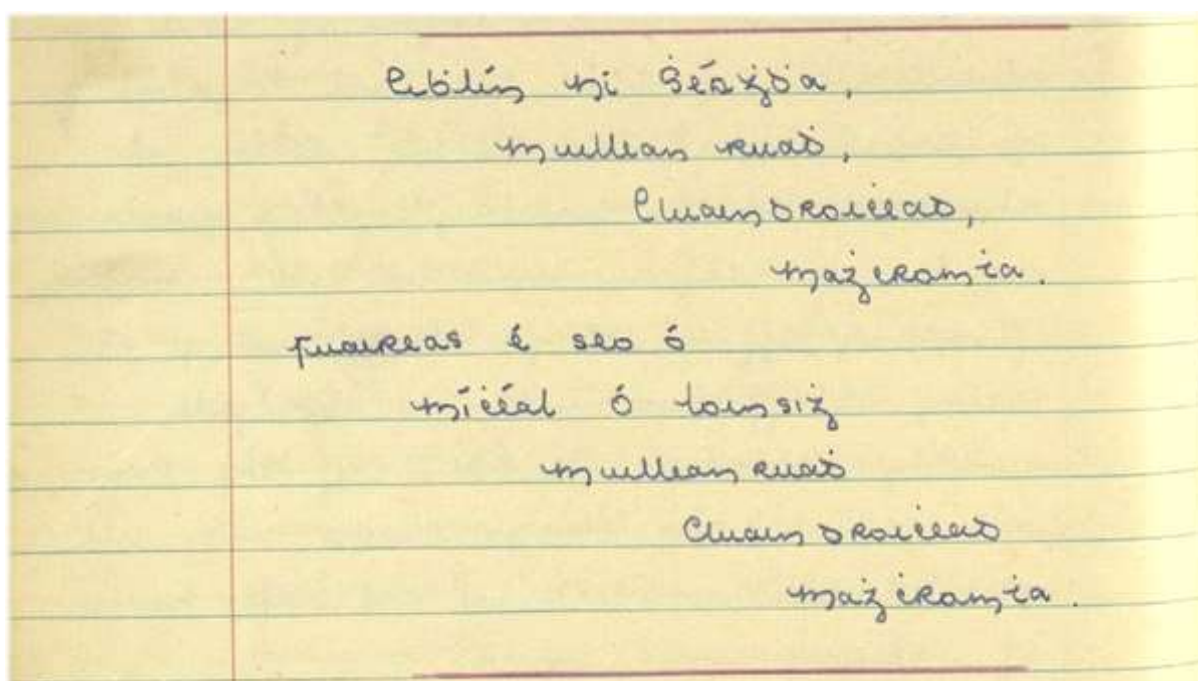 Eiḃlín ni Ṡéaġḋa,
Muillean ruaḋ,
Cluain Droiċead,
Maġcromṫa.
Fuaireas é seo ó
Míċéal Ó Loinsiġ
Muillean ruaḋ
Cluain Droiċead
Maġ ċromṫa.